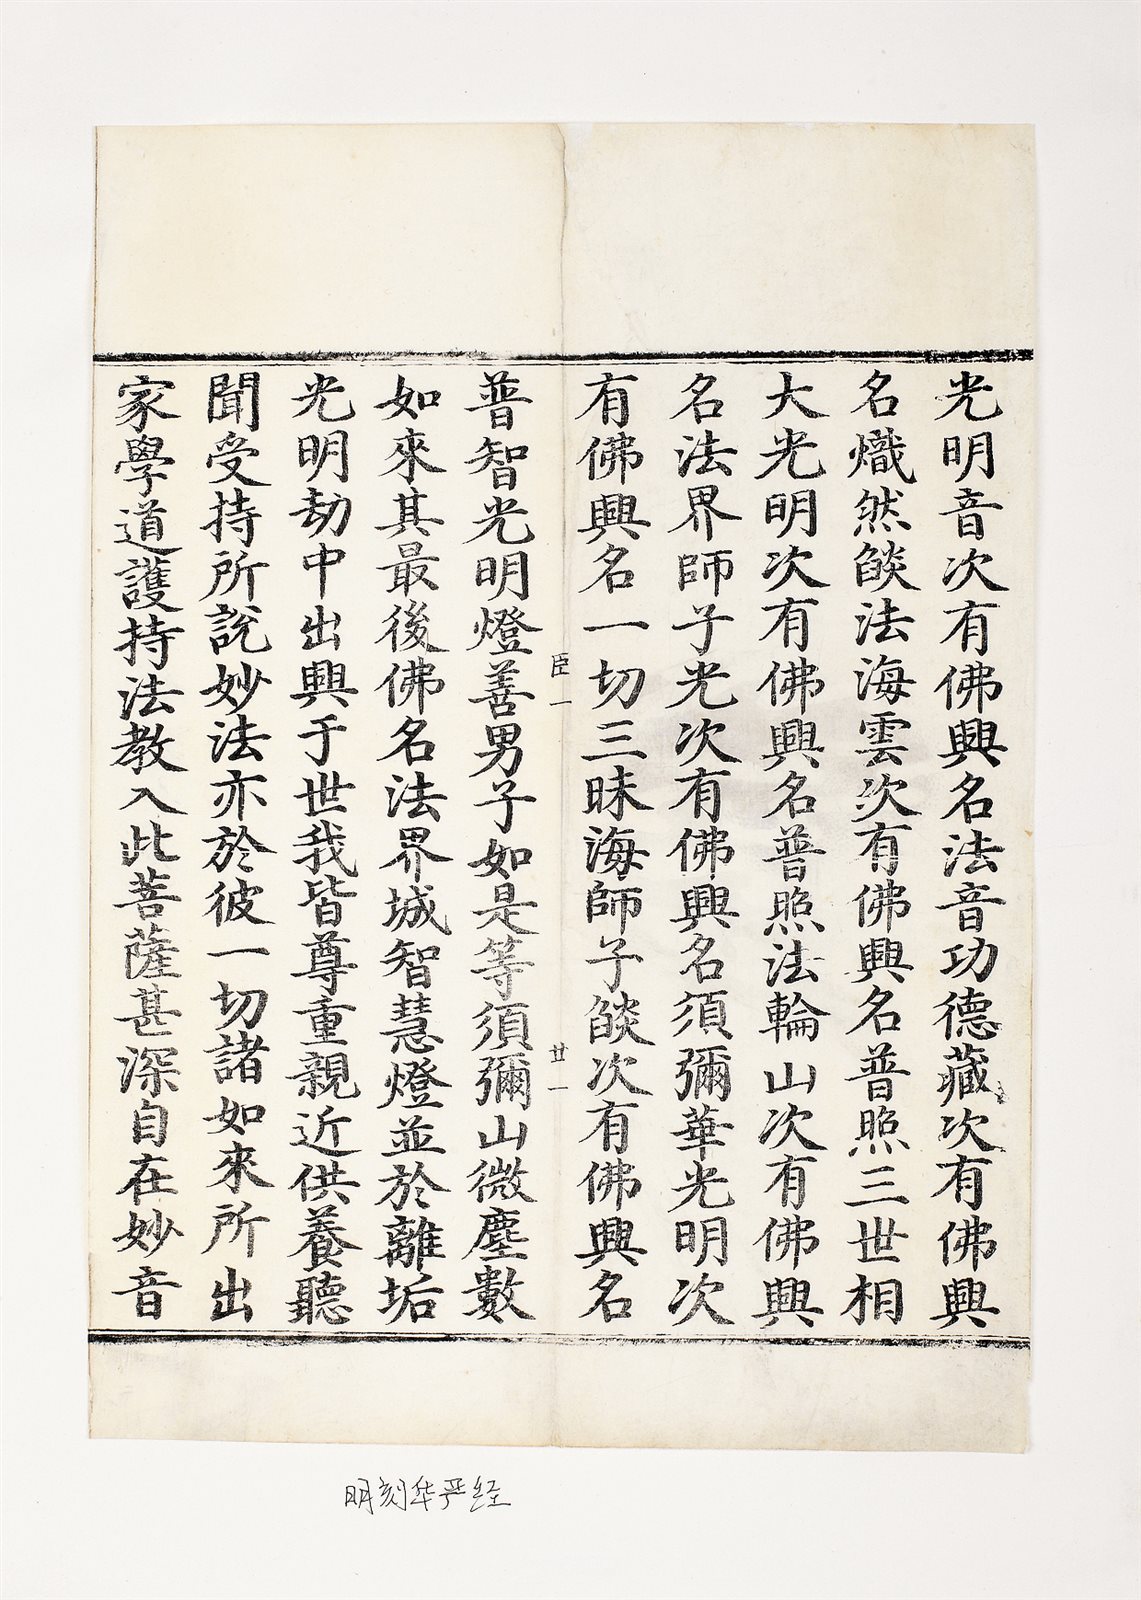 光明音次有佛興名法音功德藏次有佛興
名熾然燄法海雲次有佛興名普照三世相
大光明次有佛興名普照法輪山次有佛興
名法界師子光次有佛興名須彌華光明次
有佛興名一切三昧海師子燄次有佛興名
臣一
廿一
普智光明燈善男子如是等須彌山微塵數
如來其最後佛名法界城智慧燈並於離垢
光明劫中出興于世我皆尊重親近供養聽
聞受持所說妙法亦於彼一切諸如來所出
家學道護持法教入此菩薩甚深自在妙音
明刻华严经